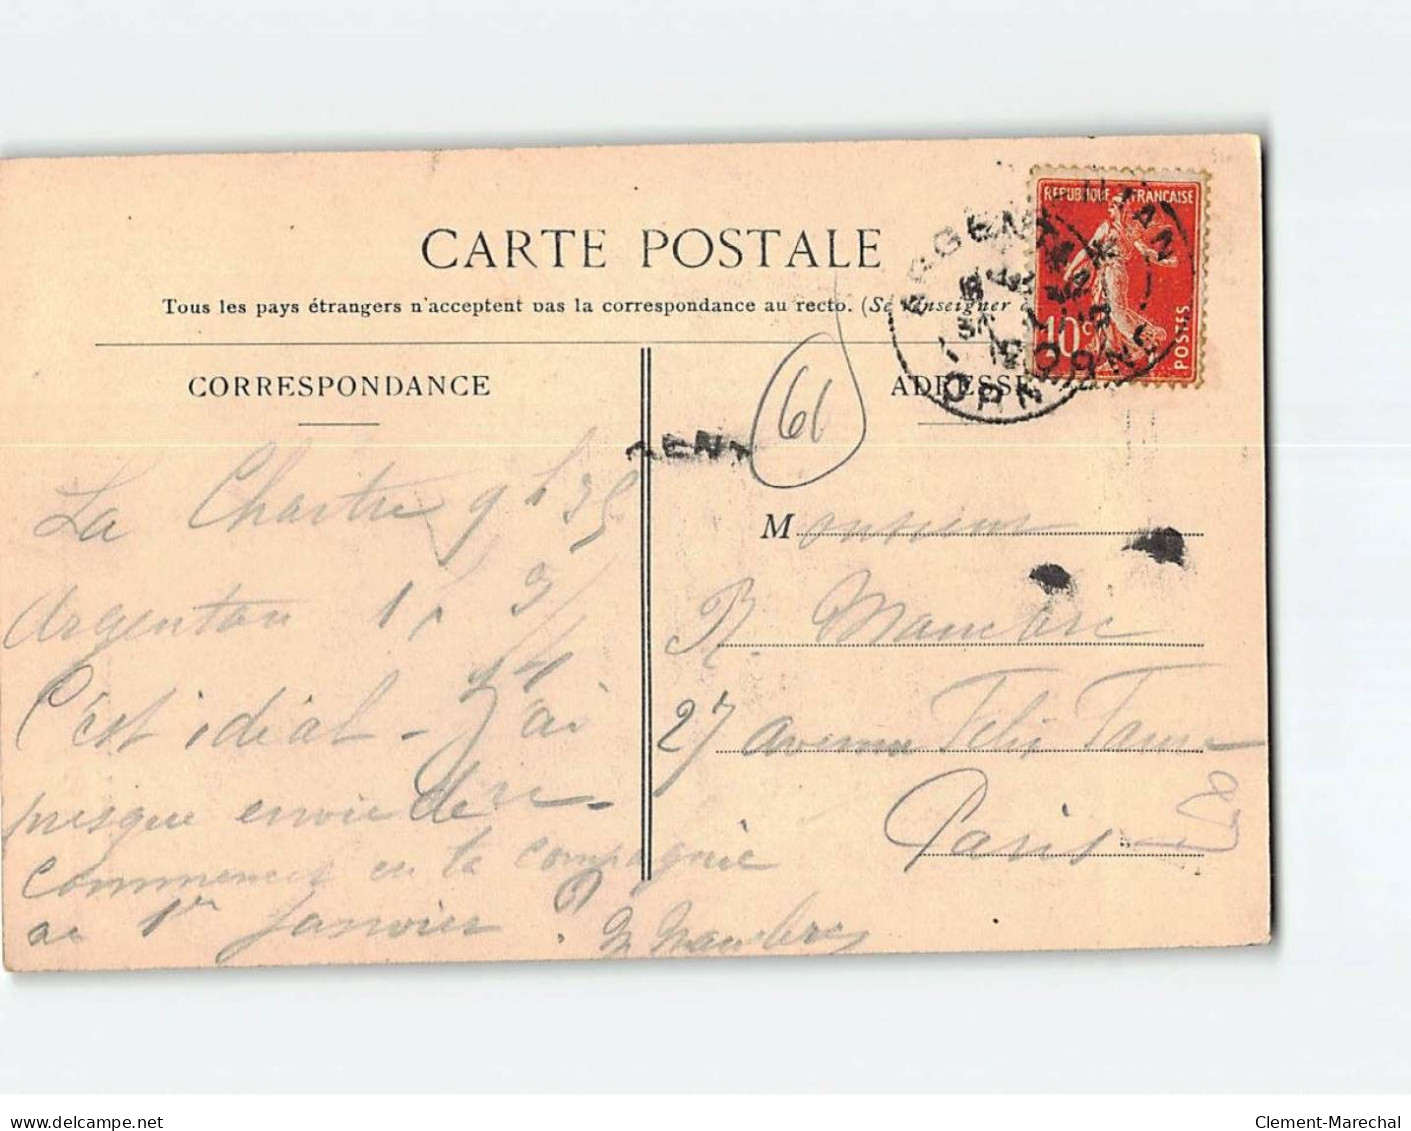 CARTE POSTALE
Tous les pays étrangers n'acceptent pas la correspondance au recto. (Se renseigner
CORRESPONDANCE
ADRESSE
REPUBLIQUE FRANÇAISE
10c
POSTES
ARGENTAN
ORNE
GENT
61
La Chartre 9h35
Argentan 11 3/4
C'est idéal - J'ai
presque envie de re-
commencer en ta compagnie
au 1er Janvier
Monsieur
R.
27 avenue Felix Faure
Paris
delcampe.net
Clement-Marechal